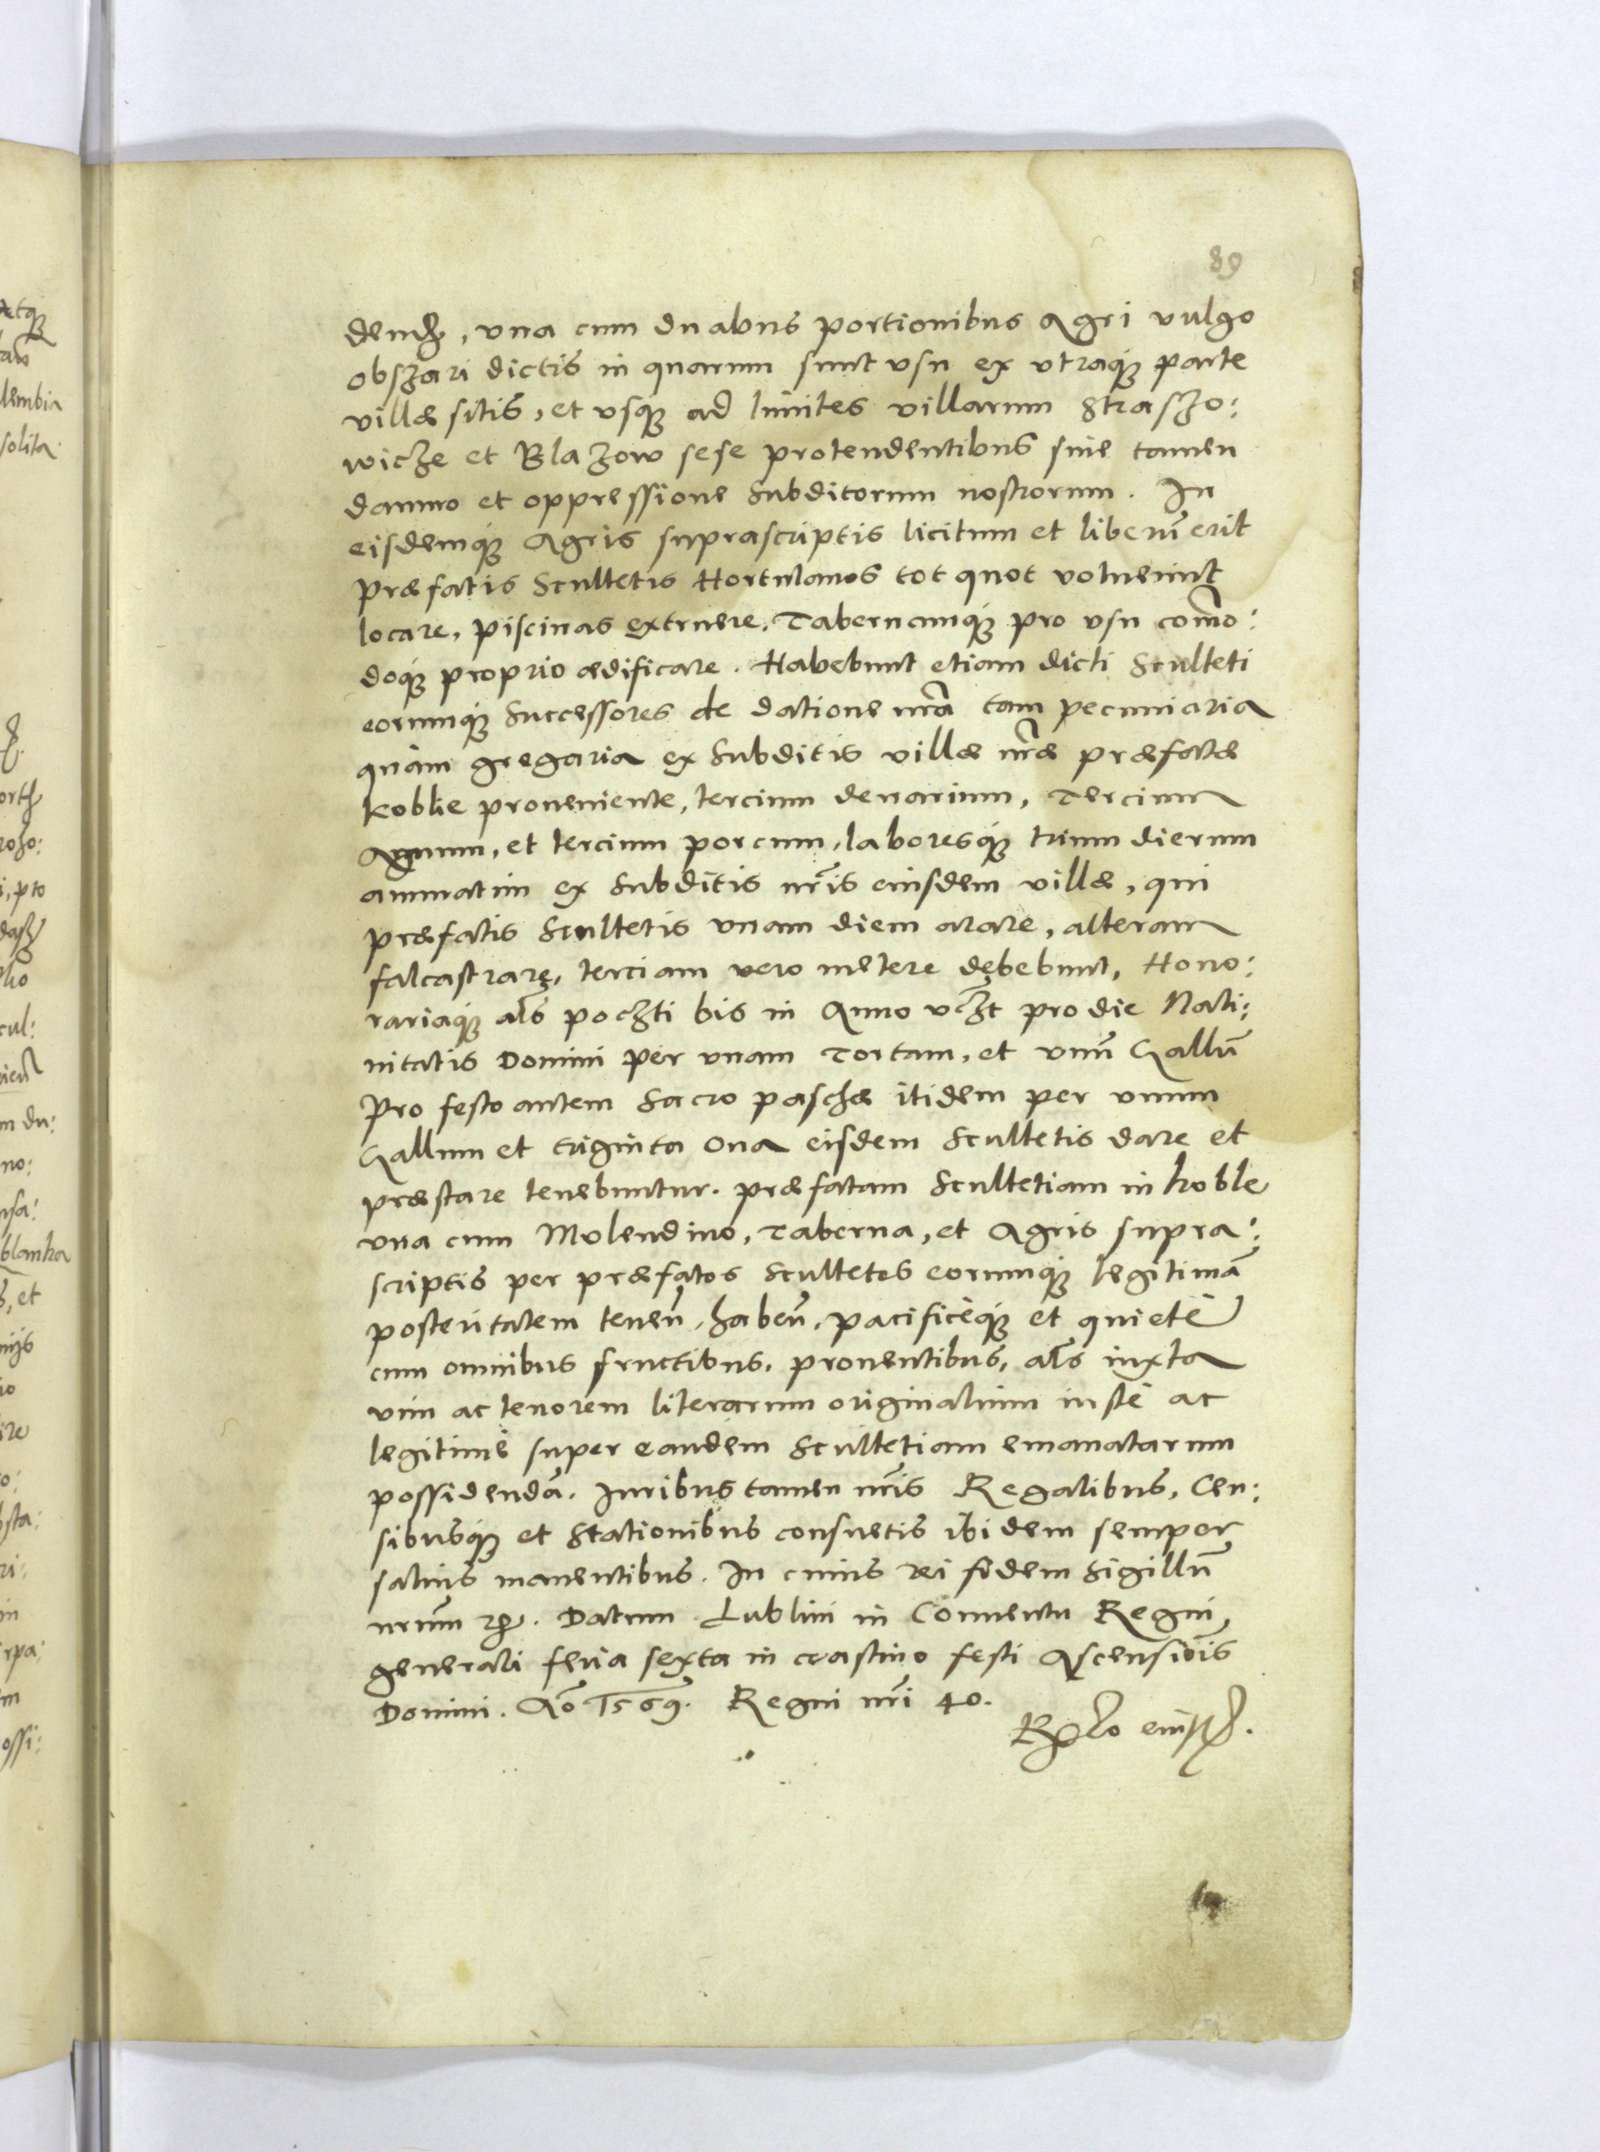 89
dendam, vna cum duabus portionibus Agri vulgo
obszari dictis in quarum sunt vsu ex vtraque parte
villæ sitis, et vsque ad limites villarum Straszo:
wicze et Blazow sese protendentibus sine tamen
damno et oppressione subditorum nostrorum. In
eisdemque Agris suprascriptis licitum et liberũ erit
præfatis Scultetis Hortulanos tot quot voluerint
locare, piscinas extruere, Tabernamque pro vsu com̃o:
doque proprio ædificare. Habebunt etiam dicti Sculteti
eorumque Successores de datione nr̃a tam pecuniaria
quàm gregaria ex Subditis villæ nr̃æ præfatæ
Koblie proueniente, tercium denarium, Tercium
Agnum, et tercium porcum, laboresque trium dierum
annuatim ex Subditis nr̃is eiusdem villæ, qui
præfatis Scultetis vnam diem arare, alteram
falcastrare, terciam vero metere debebunt, Hono:
rariaque al̃s poczti bis in Anno vczt pro die Nati:
uitatis Domini per vnam Tortam, et vnũ Gallũ
Pro festo autem Sacro paschæ itidem per vnum
Gallum et triginta oua eisdem Scultetis dare et
præstare tenebuntur. Præfatam Scultetiam in koble
vna cum Molendino, Taberna, et Agris supra:
scriptis per præfatos Scultetos eorumque legitimã
posteritatem teneñ, habeñ, pacificèque et quietè
cum omnibus fructibus, prouentibus, al̃s iuxta
vim ac tenorem literarum originalium iustè ac
legitimè super eandem Scultetiam emanatarum
possidendã. Iuribus tamen nr̃is Regalibus, Cen:
sibusque et Stationibus consuetis ibidem semper
saluis manentibus. In cuius rei fidem Sigillũ
nrũm etc. Datum Lublini in Conuentu Regni
generali feria sexta in crastino festi Ascensiõis
Domini. Aõ 1569. Regni nr̃i 40.